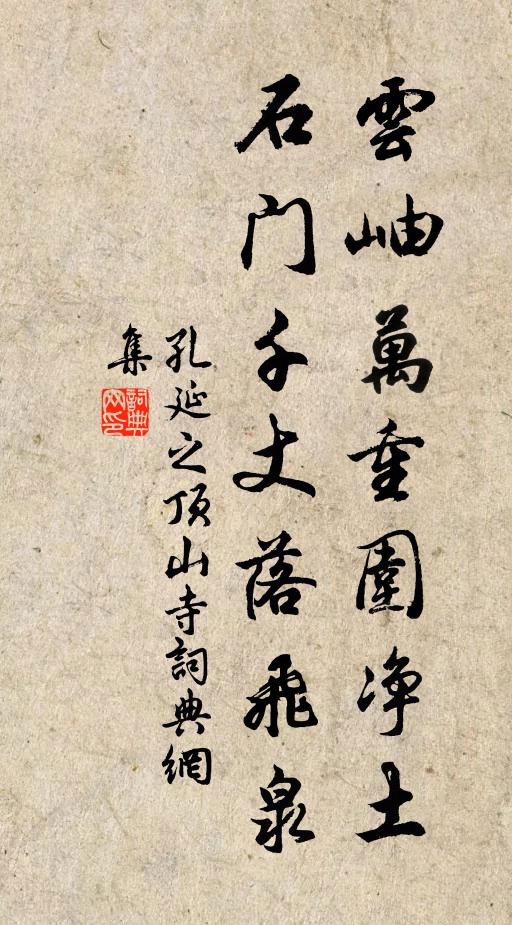 雲岫萬重圍净土
石門千丈落飛泉
孔延之頂山寺詞典網
集
詞典網印